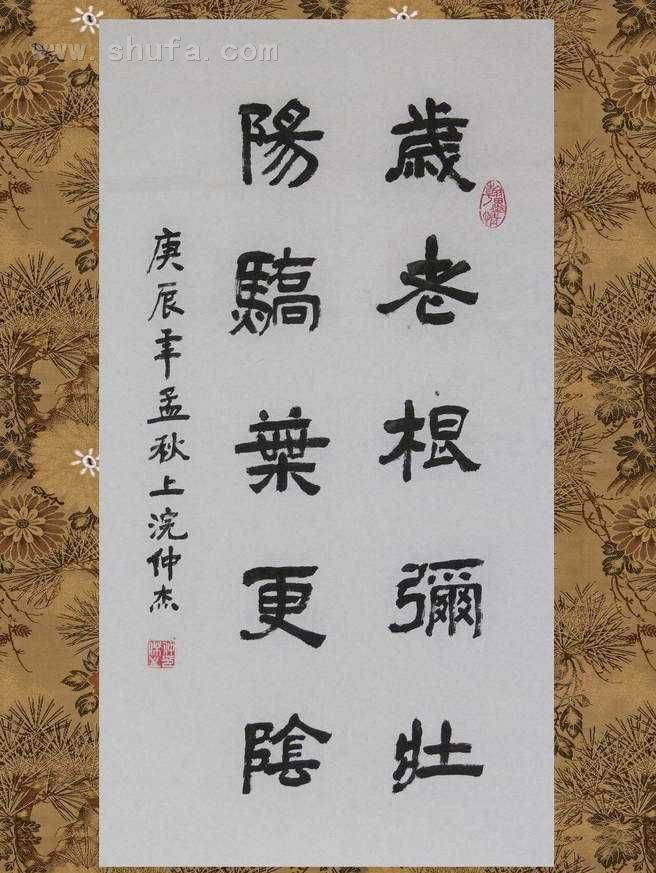 www.shufa.com
歲老根彌壯
陽驕葉更陰
庚辰年孟秋上浣仲杰